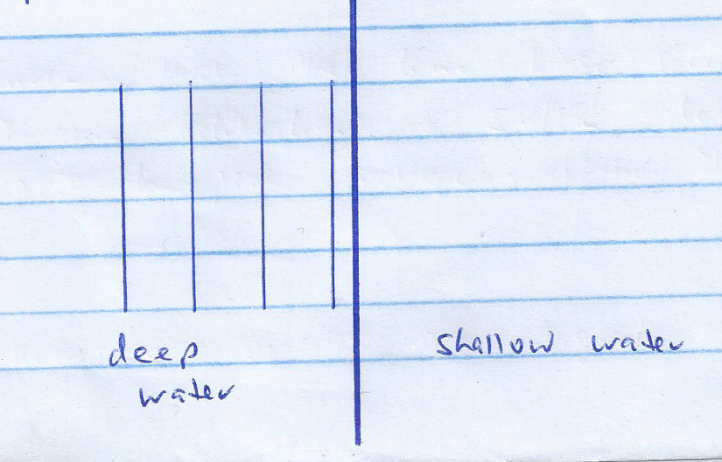 deep
water
shallow water